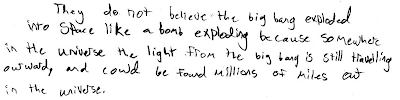 They do not believe the big bang exploded
into space like a bomb exploding because somewhere
in the universe the light from the big bang is still travelling
outward, and could be found millions of miles out
in the universe.